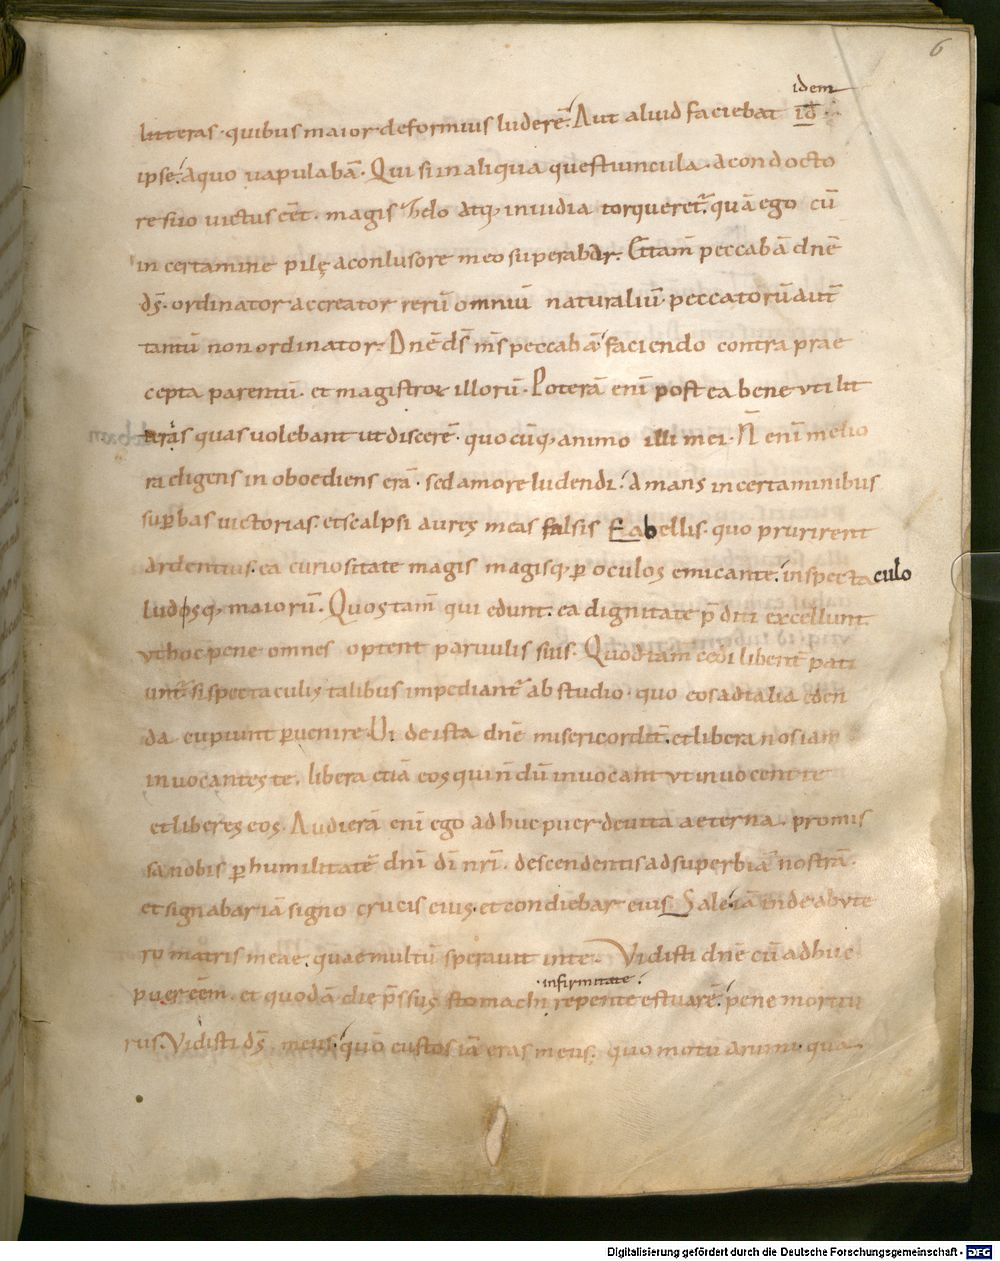 6
idem
litteras · quibus maior deformius luderē. Aut aliud faciebat id̄
ipse. a quo uapulabā. Qui si in aliqua questiuncula · a condocto
re suo uictus eēt · magis zelo atq; inuidia torqueret̄. quā ego cū
in certamine pilę a conlusore meo superabar. Et tam̄ peccabā dn̄e
ds̄ · ordinator ac creator rerū omniū naturaliū · peccatorū aut̄
tantū non ordinator. Dn̄e ds̄ m̄s peccabā faciendo contra prae
cepta parentū · et magistror̄ illorū. Poterā eni postea bene uti lit
teras quas uolebant ut discerē · quocūq; animo illi mei. N̄ eni melio
ra eligens inoboediens erā · sed amore ludendi. amans in certaminibus
sup̄bas uictorias. et scalpi aures meas falsis fabellis · quo prurirent
ardentius. ea curiositate magis magisq; p̄ oculos emicante. in spectaculo
ludosq; maiorū. Quos tam̄ qui edunt. ea dignitate p̄diti excellunt
ut hoc pene omnes optent paruulis suis. Quos tam̄ cedi libent̄ pati
unt̄. si spectaculis talibus impediant̄ ab studio · quo eos ad talia eden
da cupiunt p̄uenire. Vide ista dn̄e misericordit̄. et libera nos iam
inuocantes te. libera etiā eos qui n̄dū inuocant ut inuocent te
et liberes eos. Audierā eni ego adhuc puer de uita aeterna · promis
sa nobis p̄ humilitatē dn̄i dī nr̄i. descendentis ad superbiā nostrā.
et signabar iā signo crucis eius. et condiebar eius sale. iā inde ab ute
ro matris meae. quae multū sperauit in te. Vidisti dn̄e cū adhuc
infirmitate
puer eēm · et quodā die p̄ssus stomachi repente estuarē. pene moritu
rus. Vidisti ds̄ meus. quō custos iā eras meus. quo motu animi · qua
Digitalisierung gefördert durch die Deutsche Forschungsgemeinschaft - DFG